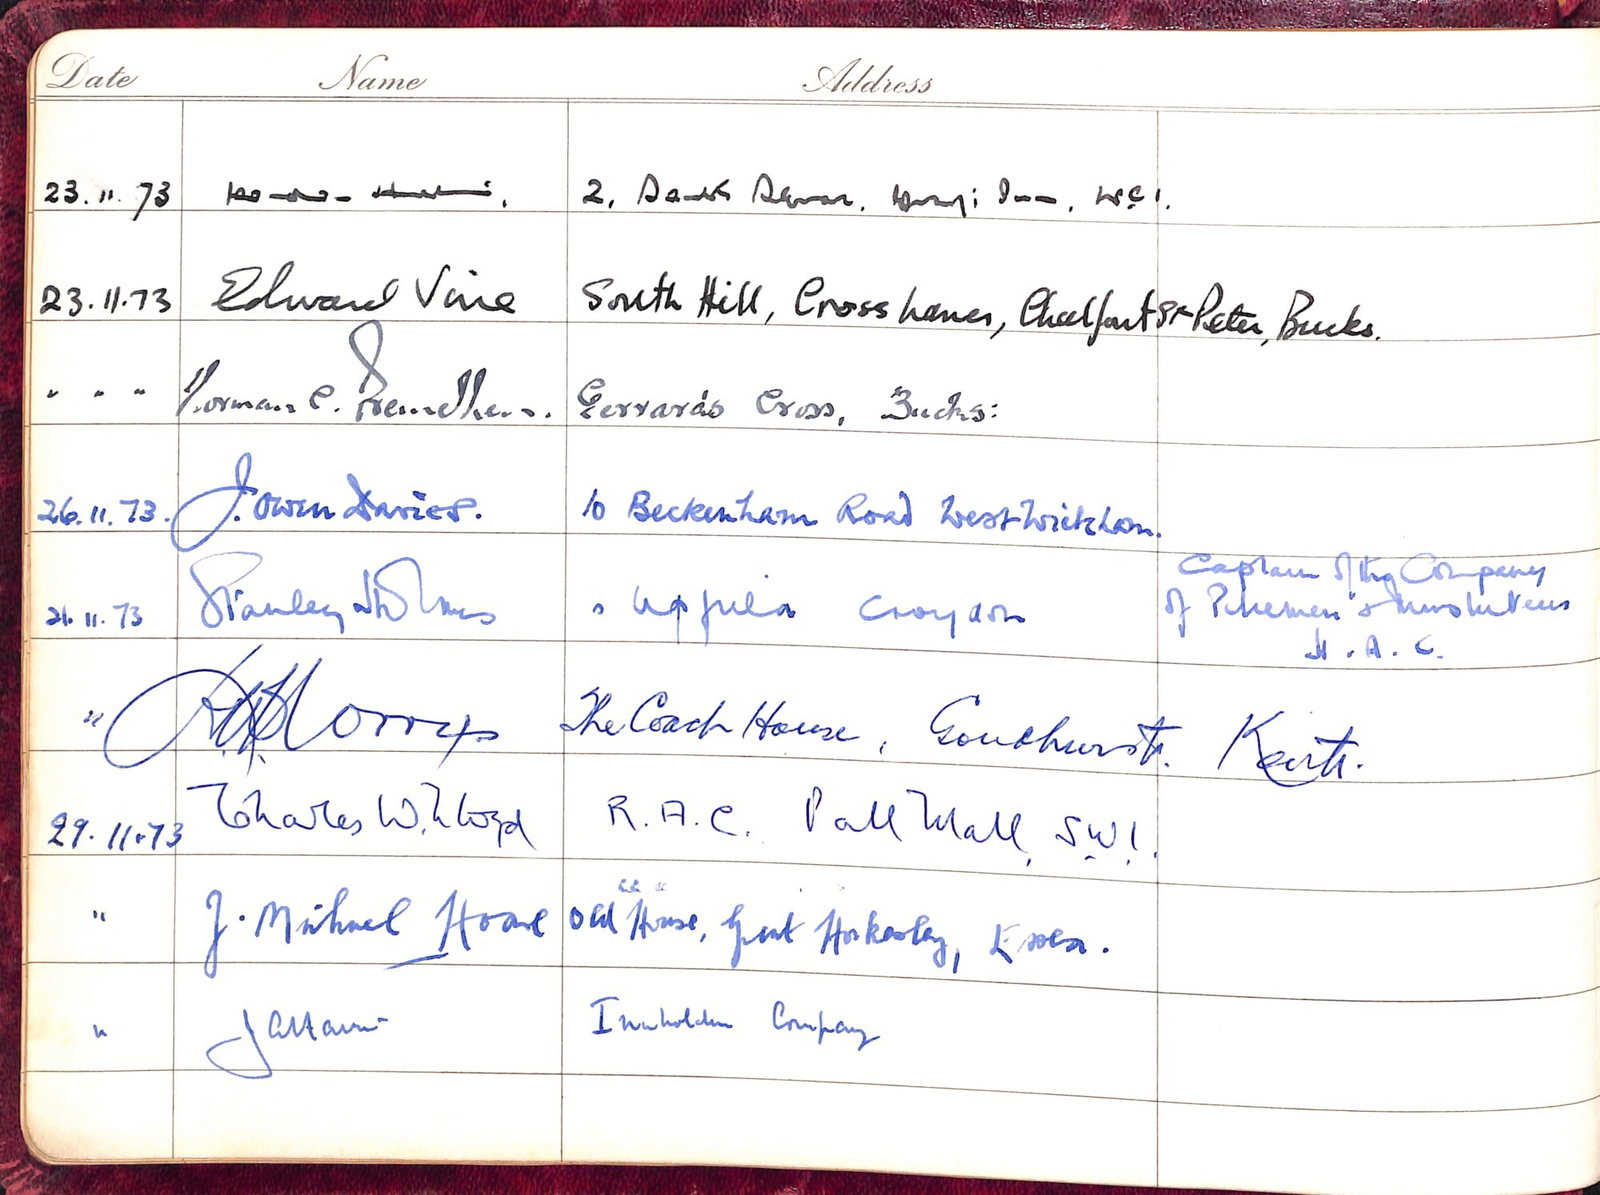 Date Name Address
23.11.73 2, Inn, WC1.
23.11.73 Edward Vine South Hill, Cross Lanes, Chalfont St Peter, Bucks.
" " " Norman C. Gerrards Cross, Bucks:
26.11.73. J. Owen Davies. 10 Beckenham Road West Wickham.
Captain of the Company
26.11.73 Stanley Holmes Croydon of Pikemen & Musketeers
H.A.C.
" Morris The Coach House, Goudhurst. Kent.
29.11.73 Charles W. Lloyd R.A.C. Pall Mall, SW1.
" J. Michael Hoare Old House, Great Horkesley, Essex.
" Innholders Company